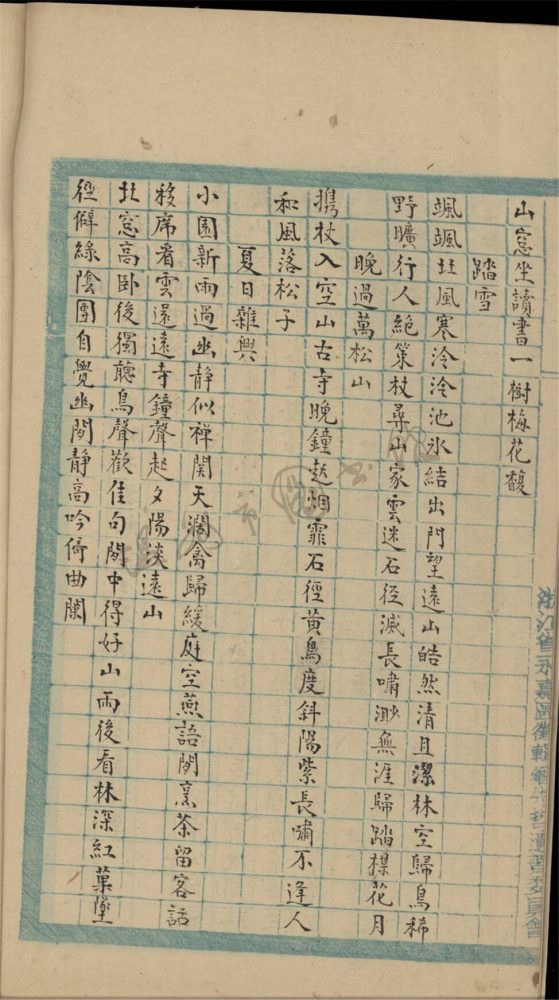 山窓坐讀書一樹梅花馥
踏雪
颯颯北風寒泠泠池水結出門望遠山皓然清且潔林空歸鳥稀
野曠行人絶策杖尋山家雲迷石徑滅長嘯渺無涯歸踏楳花月
晚過萬松山
携杖入空山古寺晚鐘起烟霏石徑黃鳥度斜陽紫長嘯不逢人
和風落松子
夏日雜興
小園新雨過幽静似禅関天濶禽歸緩庭空燕語閒烹茶留客話
移席看雲還遠寺鐘聲起夕陽淡遠山
北窓高卧後獨聽鳥聲歡佳句閒中得好山雨後看林深紅菓墜
徑僻綠陰團自覺幽閒静高吟倚曲闌
浙江省永嘉區徵輯鄉先哲遺著委員會